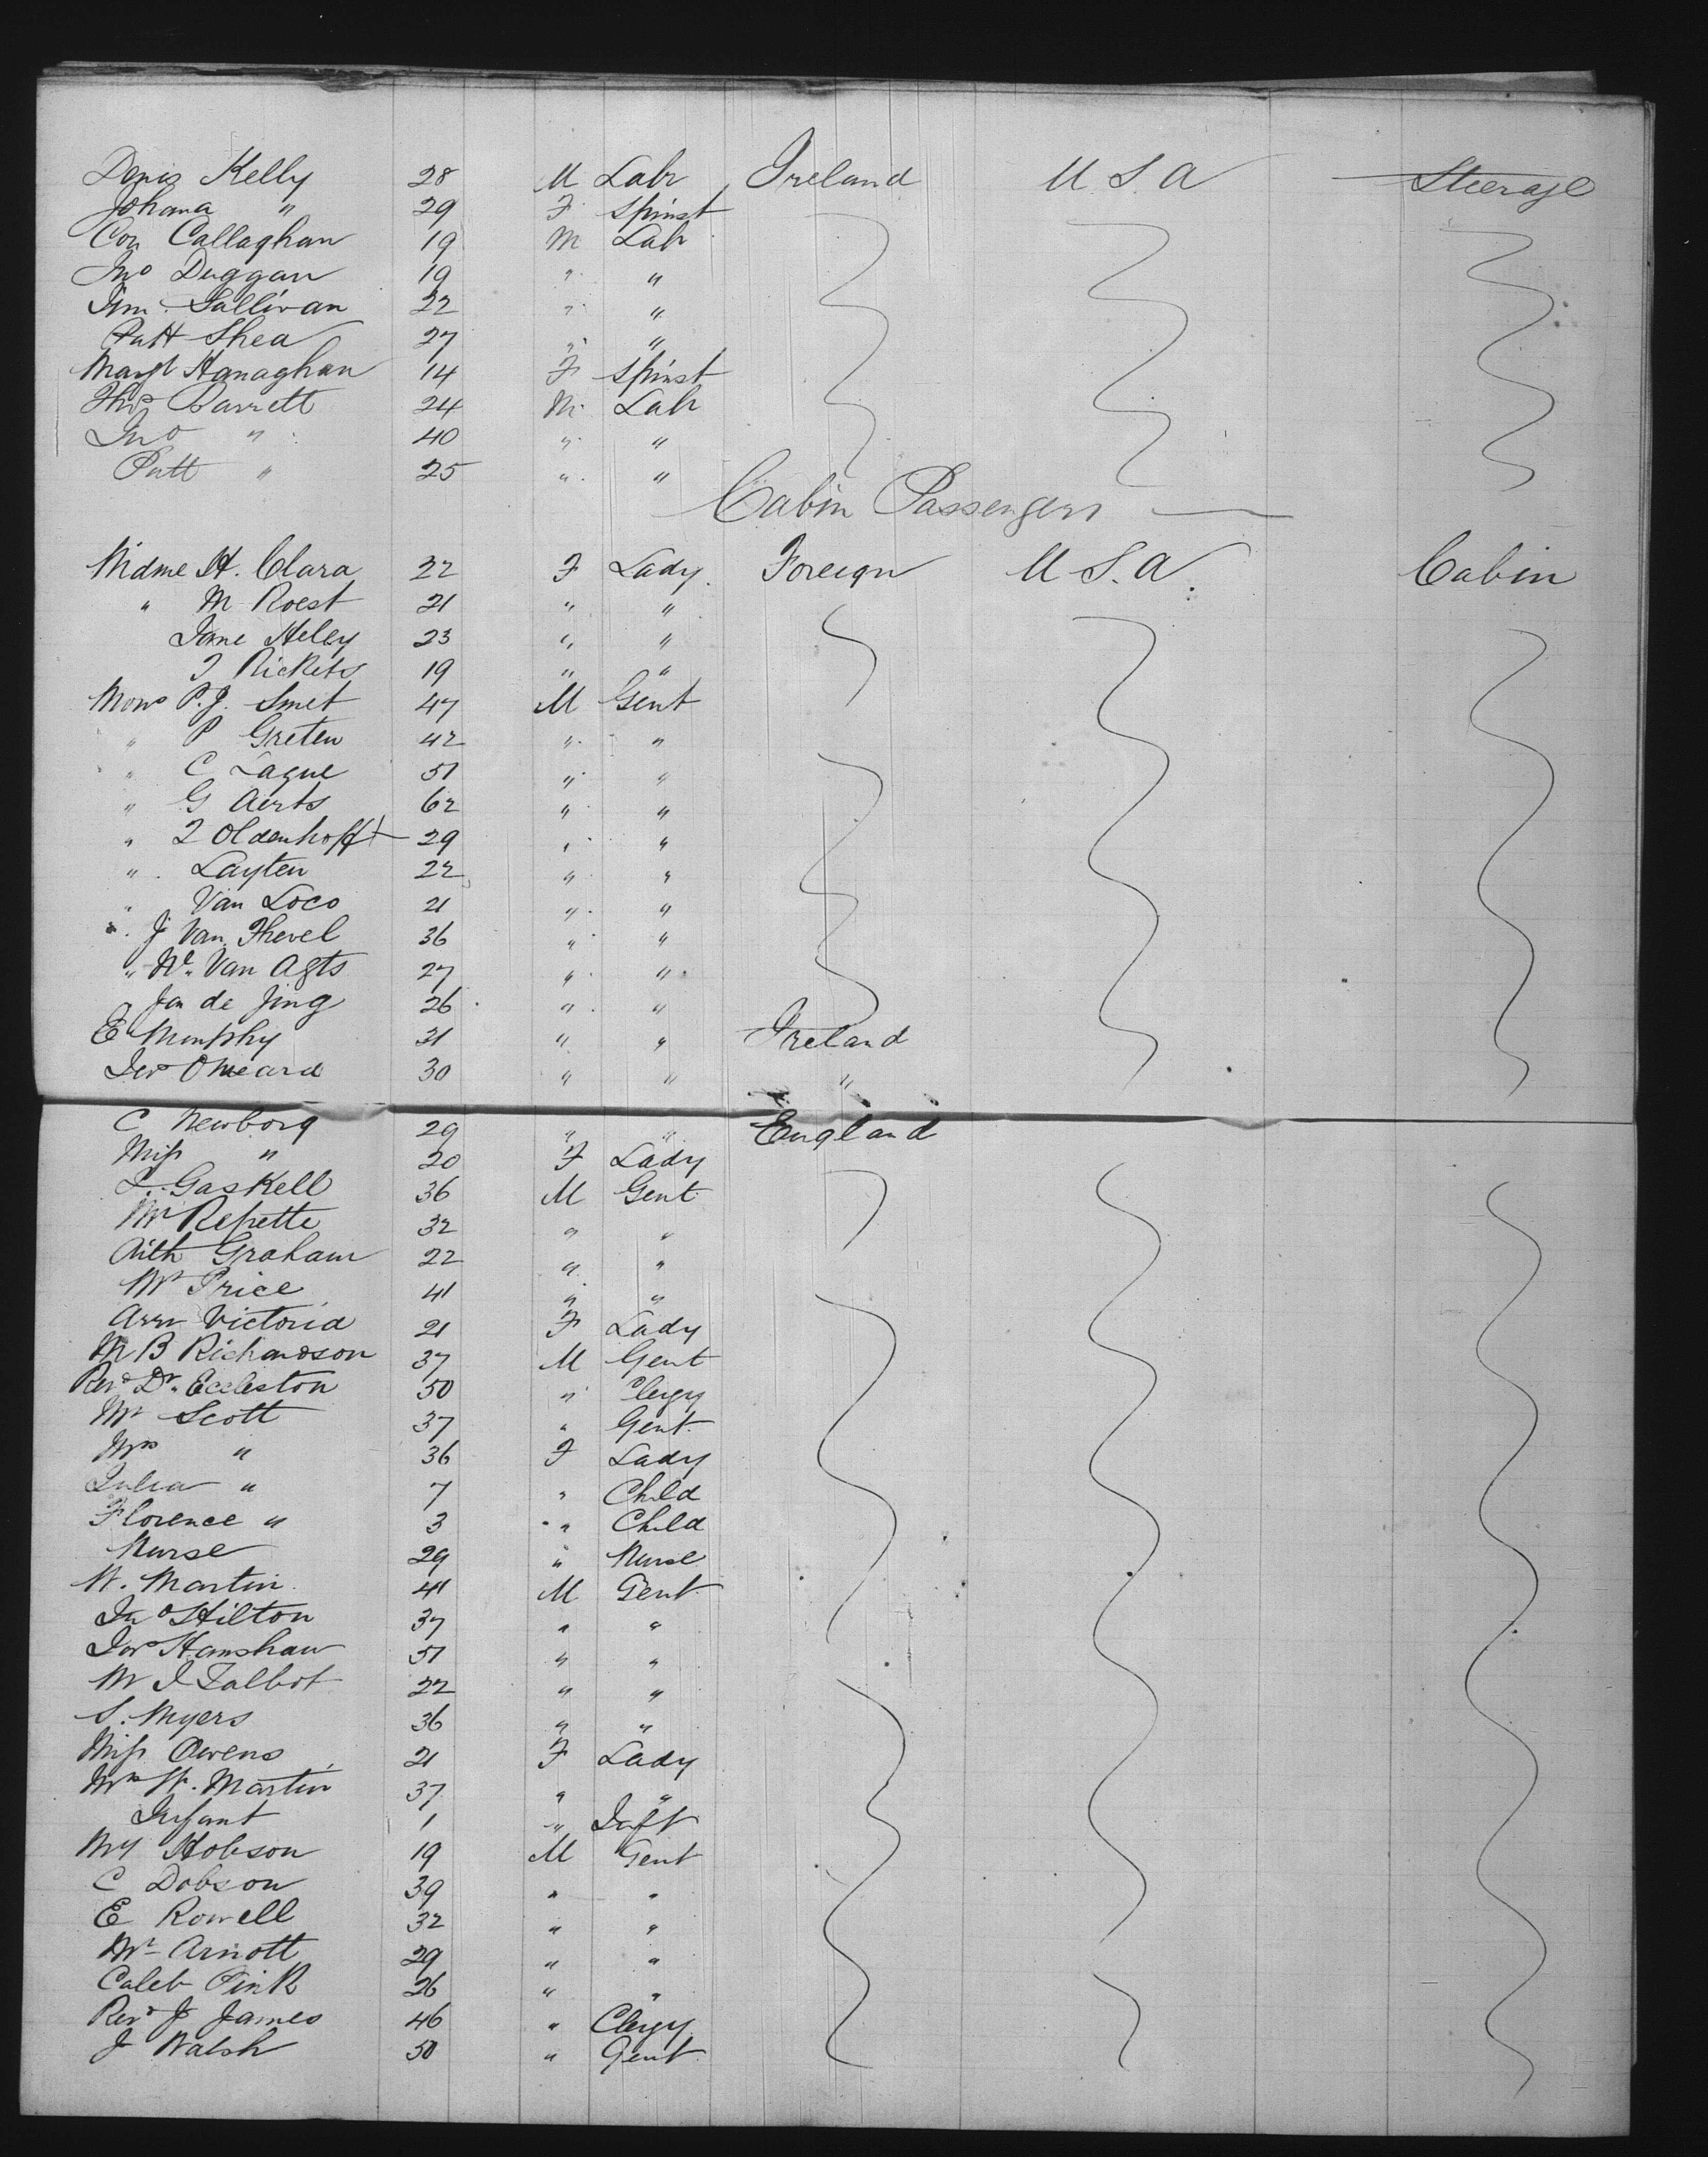 Denis Kelly 28 M Labr Ireland U.S.A Steerage
Johana " 29 F Spinst
Con Callaghan 19 M Labr
Jno Duggan 19 " "
Tim. Sullivan 22 " "
Patt Shea 27 " "
Margt Hanaghan 14 F Spinst
Thos Barrett 24 M Labr
Jno " 40 " "
Patt " 25 " "
Cabin Passengers
Mdme H. Clara 22 F Lady Foreign U.S.A. Cabin
" M Roest 21 " "
Jane Heley 23 " "
J Rickets 19 " "
Mons P.J. Smet 47 M Gent
" P Greten 42 " "
" C Lague 51 " "
" G Aerts 62 " "
" Oldenhofft 29 " "
" Layten 22 " "
" Van Loco 21 " "
" J Van Thevel 36 " "
" W. Van Agts 27 " "
Jan de Jing 26 " "
E Murphy 31 " " Ireland
Jer OMeara 30 " " "
C Newborg 29 " " England
Miss " 20 F Lady
Gaskell 36 M Gent
Mr Repette 32 " "
Aith Graham 22 " "
Mr Price 41 " "
Ann Victoria 21 F Lady
M B Richardson 37 M Gent
Revd Dr. Eccleston 50 " Clergy
Mr Scott 37 " Gent
Mrs " 36 F Lady
Julia " 7 " Child
Florence " 3 " Child
Nurse 29 " Nurse
W. Martin 41 M Gent
Jno Hilton 37 " "
Jos Hanshaw 51 " "
Mr J Talbot 22 " "
S. Myers 36 " "
Miss Owens 21 F Lady
Mrs W. Martin 37 " "
Infant 1 " Inft
My Hobson 19 M Gent
C Dobson 39 " "
E Rowell 32 " "
Mr Arnott 29 " "
Caleb Pink 26 " "
Revd J James 46 " Clergy
J Walsh 50 " Gent